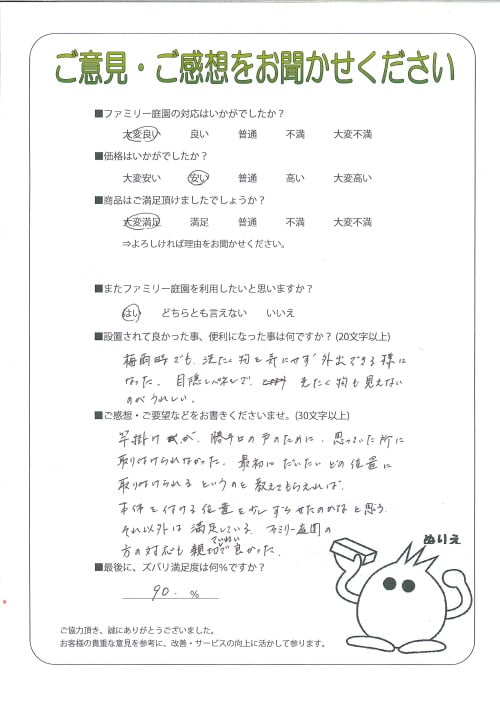 ご意見・ご感想をお聞かせください
■ファミリー庭園の対応はいかがでしたか？
大変良い 良い 普通 不満 大変不満
■価格はいかがでしたか？
大変安い 安い 普通 高い 大変高い
■商品はご満足頂けましたでしょうか？
大変満足 満足 普通 不満 大変不満
⇒よろしければ理由をお聞かせください。
■またファミリー庭園を利用したいと思いますか？
はい どちらとも言えない いいえ
■設置されて良かった事、便利になった事は何ですか？(20文字以上)
梅雨時でも、洗たく物を気にせず外出できる様に
なった。目隠しパネルで、洗たく物も見えない
のがうれしい。
■ご感想・ご要望などをお書きくださいませ。(30文字以上)
竿掛けが、勝手口の戸のために、思っていた所に
取り付けられなかった。最初にだいたいどの位置に
取り付けられるというのを教えてもらえれば、
本体を付ける位置を少しずらせたのかなと思う。
それ以外は満足している。ファミリー庭園の
方の対応も親切でていねいで良かった。
■最後に、ズバリ満足度は何%ですか？
90. %
ぬりえ
ご協力頂き、誠にありがとうございました。
お客様の貴重な意見を参考に、改善・サービスの向上に活かして参ります。